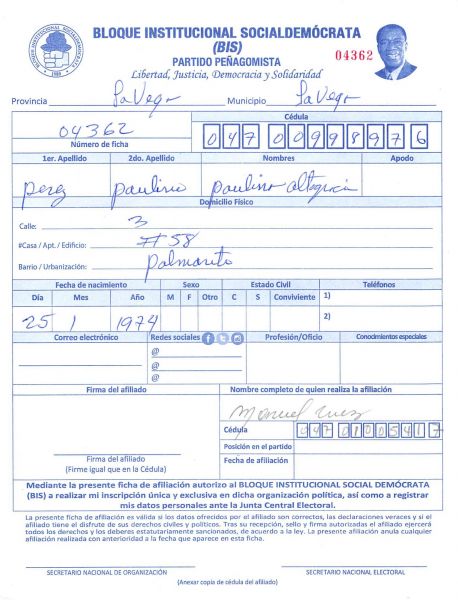 BLOQUE INSTITUCIONAL SOCIALDEMÓCRATA
BLOQUE INSTITUCIONAL SOCIALDEMÓCRATA
(BIS)
PARTIDO PEÑAGOMISTA
04362
Libertad, Justicia, Democracia y Solidaridad
Provincia La Vega Municipio La Vega
04362
Número de ficha
Cédula
047 0099897 6
1er. Apellido 2do. Apellido Nombres Apodo
Perez Paulino Paulino Altagracia
Domicilio Físico
Calle: 3
#Casa / Apt. / Edificio: #58
Barrio / Urbanización: Palmarito
Fecha de nacimiento Sexo Estado Civil Teléfonos
Día Mes Año M F Otro C S Conviviente 1)
25 1 1974 2)
Correo electrónico Redes sociales Profesión/Oficio Conocimientos especiales
@
@
@
Firma del afiliado Nombre completo de quien realiza la afiliación
Manuel
Cédula 047 0100541 7
Posición en el partido
Fecha de afiliación
Firma del afiliado
(Firme igual que en la Cédula)
Mediante la presente ficha de afiliación autorizo al BLOQUE INSTITUCIONAL SOCIAL DEMÓCRATA
(BIS) a realizar mi inscripción única y exclusiva en dicha organización política, así como a registrar
mis datos personales ante la Junta Central Electoral.
La presente ficha de afiliación es válida si los datos ofrecidos por el afiliado son correctos, las declaraciones veraces y si el
afiliado tiene el disfrute de sus derechos civiles y políticos. Tras su recepción, sello y firma autorizadas el afiliado ejercerá
todos los derechos y los deberes estatutariamente sancionados, de acuerdo a la ley. La presente afiliación anula cualquier
afiliación realizada con anterioridad a la fecha que aparece en esta ficha.
SECRETARIO NACIONAL DE ORGANIZACIÓN SECRETARIO NACIONAL ELECTORAL
(Anexar copia de cédula del afiliado)